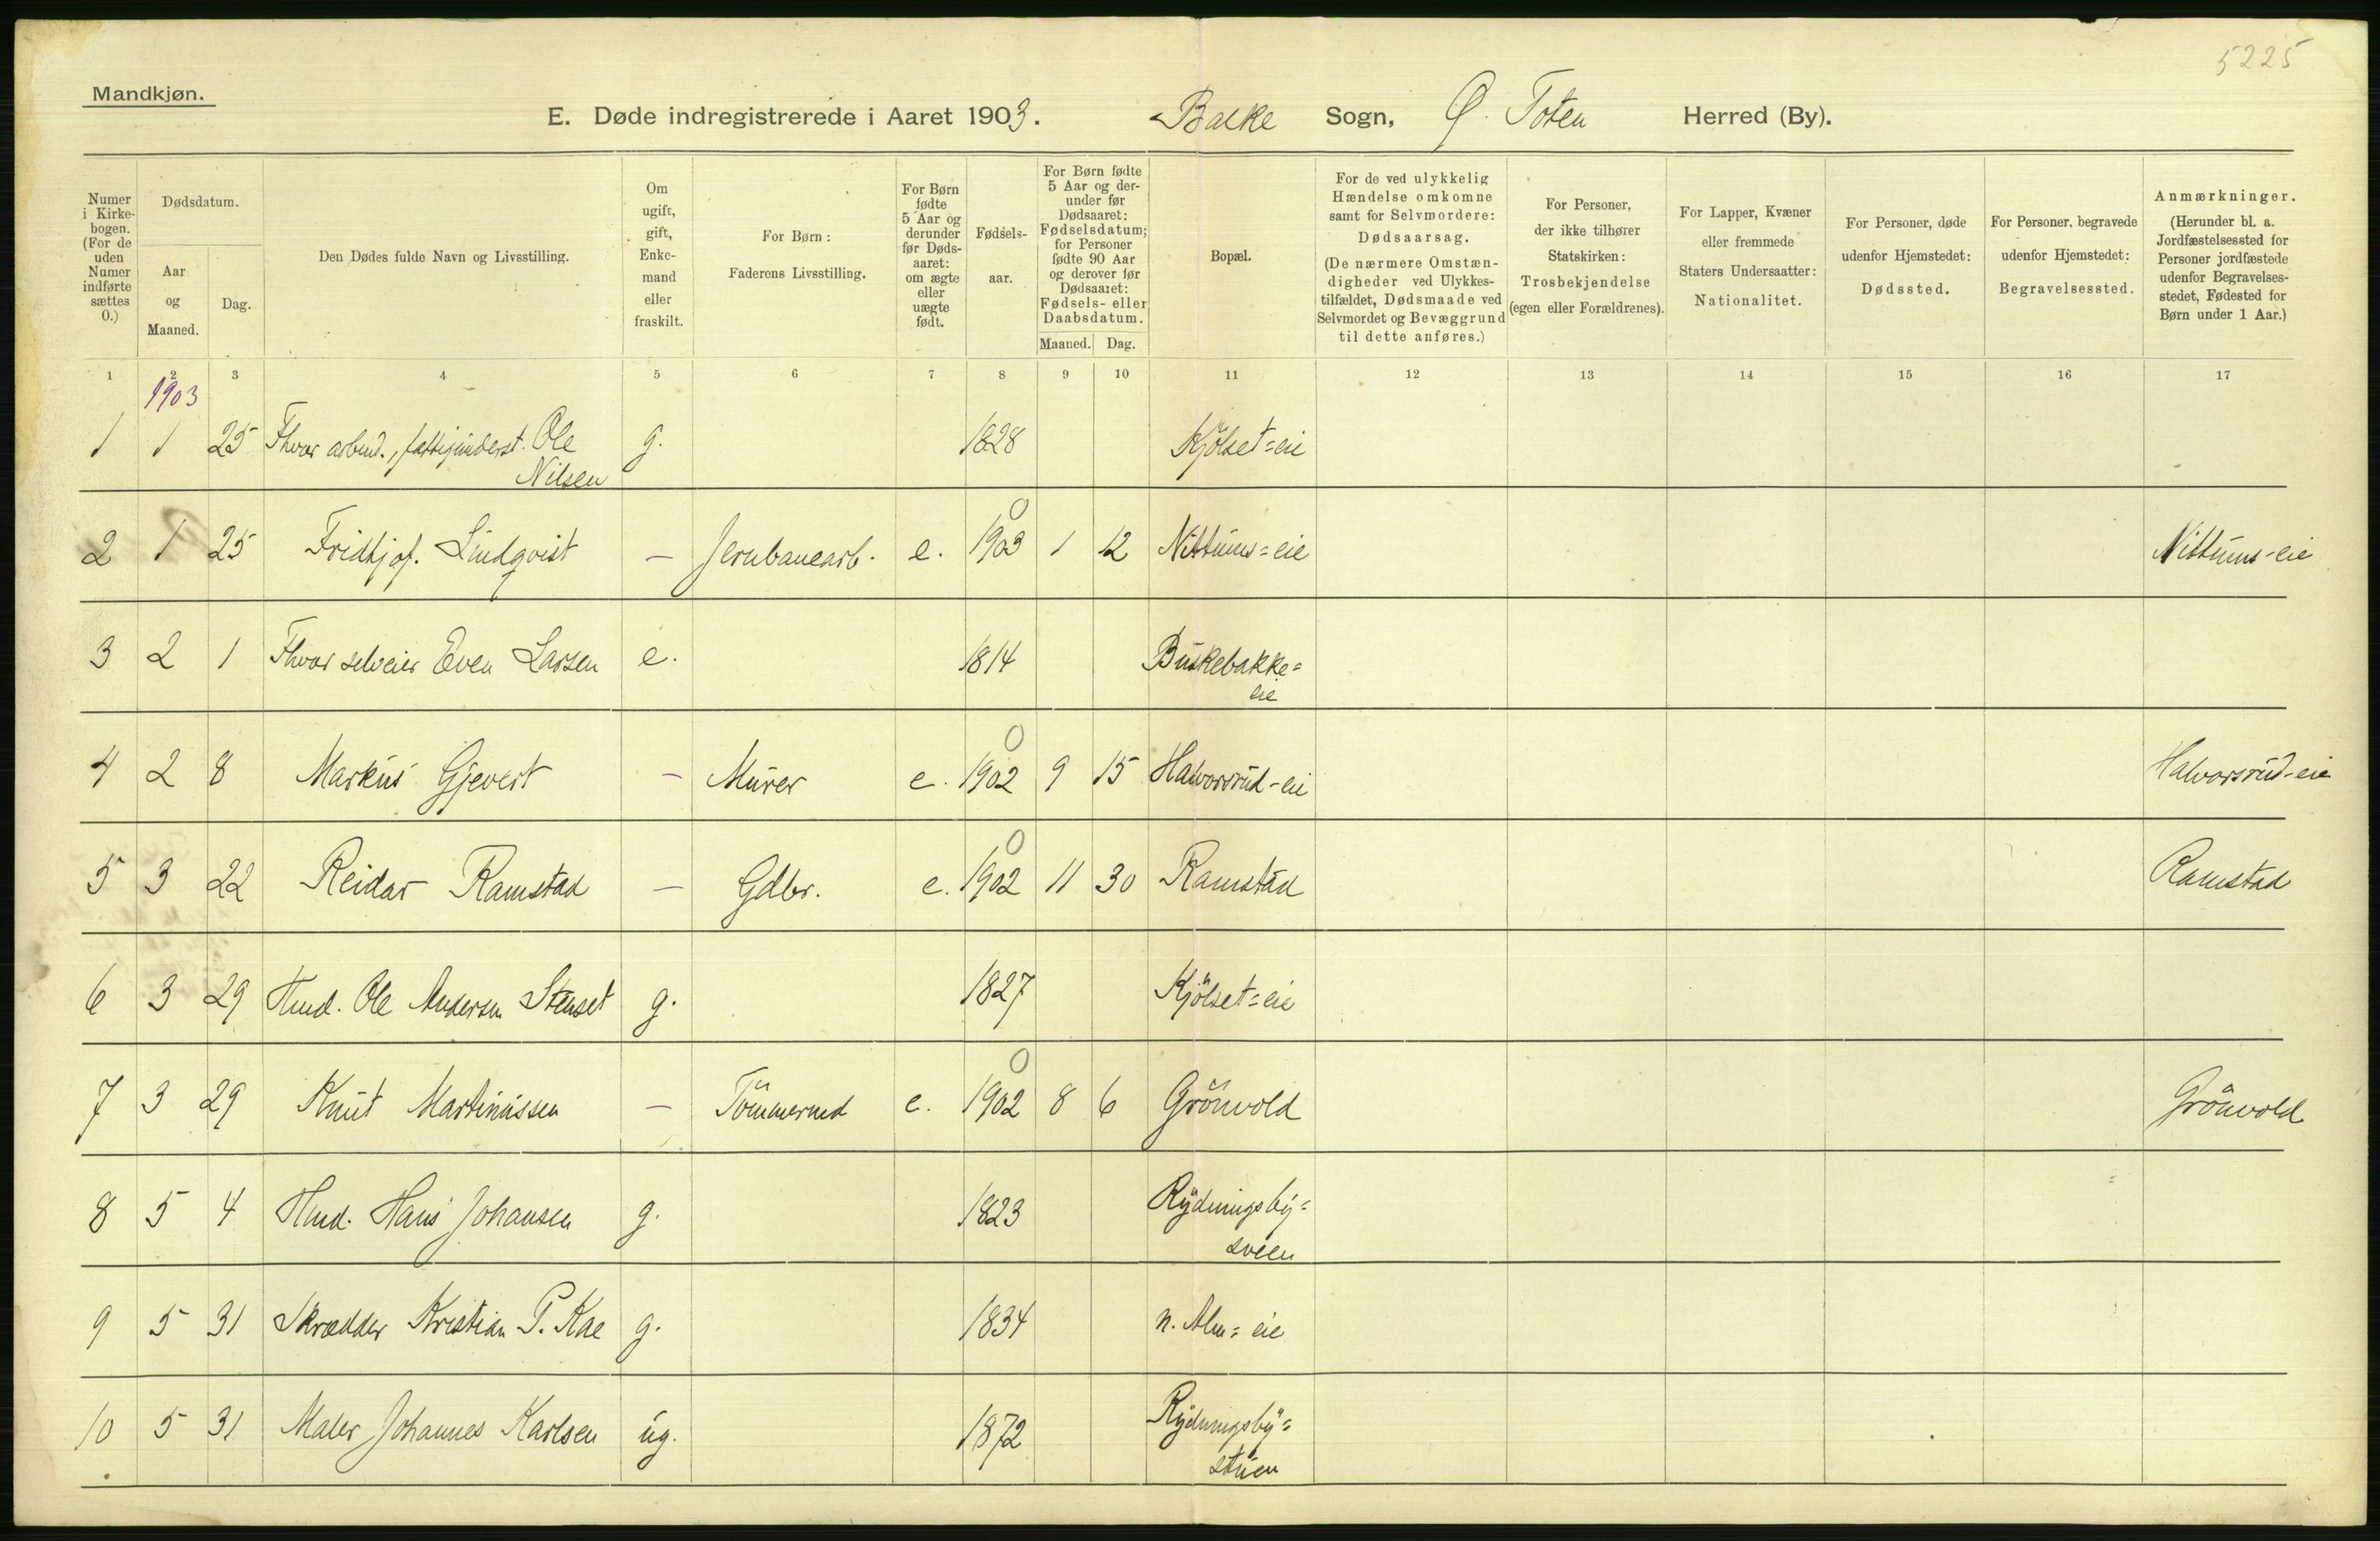 5225
Mandkjøn.
E. Døde indregistrerede i Aaret 1903. Balke Sogn, Ø. Toten Herred (By).
Numer i Kirkebogen. (For de uden Numer indførte sættes 0.)
Dødsdatum.
Aar og Maaned.
Dag.
Den Dødes fulde Navn og Livsstilling.
Om ugift, gift, Enkemand eller fraskilt.
For Børn: Faderens Livsstilling.
For Børn fødte 5 Aar og derunder før Dødsaaret: om ægte eller uægte født.
Fødselsaar.
For Børn fødte 5 Aar og derunder før Dødsaaret: Fødselsdatum; for Personer fødte 90 Aar og derover før Dødsaaret: Fødsels- eller Daabsdatum.
Maaned. Dag.
Bopæl.
For de ved ulykkelig Hændelse omkomne samt for Selvmordere: Dødsaarsag. (De nærmere Omstændigheder ved Ulykkestilfældet, Dødsmaade ved Selvmordet og Bevæggrund til dette anføres.)
For Personer, der ikke tilhører Statskirken: Trosbekjendelse (egen eller Forældrenes).
For Lapper, Kvæner eller fremmede Staters Undersaatter: Nationalitet.
For Personer, døde udenfor Hjemstedet: Dødssted.
For Personer, begravede udenfor Hjemstedet: Begravelsessted.
Anmærkninger. (Herunder bl. a. Jordfæstelsessted for Personer jordfæstede udenfor Begravelsesstedet, Fødested for Børn under 1 Aar.)
1 2 3 4 5 6 7 8 9 10 11 12 13 14 15 16 17
1903
1 1 25 Fhvor arbeid., Ole g. 1828 Kjölset=eie
Nilsen
0
2 1 25 Fridtjof. Lindqvist — Jernbanearb. e. 1903 1 12 Nittúms=eie Nittúms-eie
3 2 1 Fhvor selveier Even Larsen e. 1814 Búskebakke=
eie
0
4 2 8 Markús Gjevert — Múrer e. 1902 9 15 Halvorsrúd-eie Halvorsrúd-eie
0
5 3 22 Reidar Ramstad — Gdbr. e. 1902 11 30 Ramstad Ramstad
6 3 29 Hmd. Ole Andersen Stenset g. 1827 Kjölset=eie
0
7 3 29 Knút Martinússen — Tömmermd e. 1902 8 6 Grönvold Grönvold
8 5 4 Hmd. Hans Johansen g. 1823 Rydningsby=
sveen
9 5 31 Skrædder Kristian P. Kae g. 1834 n. Alm=eie
10 5 31 Maler Johannes Karlsen úg. 1872 Rydningsby=
stúen